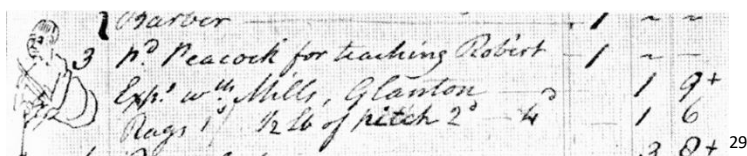 Barber — 1 ~ ~
3 pd Peacock for teaching Robert – 1 ~ –
Exps wth Mills, Glanton — 1 9+
Rags 1d/ 1/2 lb of pitch 2d – 4d — 1 6
3 8+
29